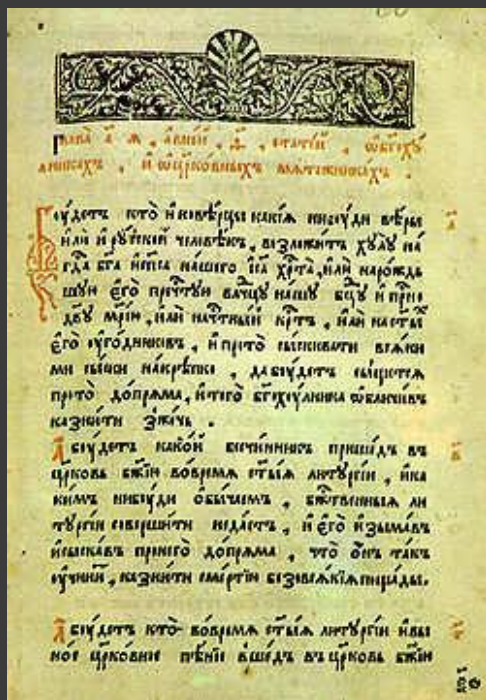 Глава а҃ я҃, а в ней, ѳ҃, статей, ѡ бг҃оху
лникахъ, и ѡ цр҃ковныхъ мятежникахъ.
Бꙋдетъ кто̀ и҆новѣрцы какі́я нибꙋди вѣры
и҆лѝ и҆ рꙋ́ской человѣ́къ, возложи́тъ хꙋлꙋ̀ на
гд҃а бг҃а и҆ сп҃са нашего і҆с҃а хр҃та̀, и҆лѝ наро́ждь
шꙋю є҆го̀ пречт҃ꙋю влⷣчцꙋ на́шꙋ бц҃ꙋ и҆ прⷭ҇но
дв҃ꙋ мр҃і́ю, и҆лѝ на чтⷭ҇ны́й крⷭ҇тъ, и҆лѝ на ст҃ы́хъ
є҆го̀ ᲂу҆го́дниковъ, и҆ про то̀ сы́скивати вся́ки
ми сы́ски на крѣ́пко, да бꙋ́детъ сы́щется
про то̀ до́пряма, и҆ того̀ бг҃охꙋ́лника ѡ҆бличи́въ
казни́ти зже́чь.
А бꙋ́детъ како́й безчи́нникъ прише́дъ въ
цр҃ковь бж҃ію во вре́мя ст҃ы́я литꙋргі́и, и҆ ка
ки́мъ нибꙋди ѻ҆бы́чаемъ, бжⷭ҇твенныя ли
тꙋргі́и соверши́ти не да́стъ, и҆ є҆го̀ и҆зыма́въ
и҆ сыска́въ про него̀ до́пряма, что̀ ѻ҆́нъ та́къ
ᲂу҆чини́тъ, казни́ти сме́ртію безо вся́кія поща́ды.
А бꙋ́детъ кто̀ во вре́мя ст҃ы́я литꙋргі́и и҆ в ы
ное цр҃ко́вное пѣ́ніе вше́дъ въ цр҃ковь бж҃ію